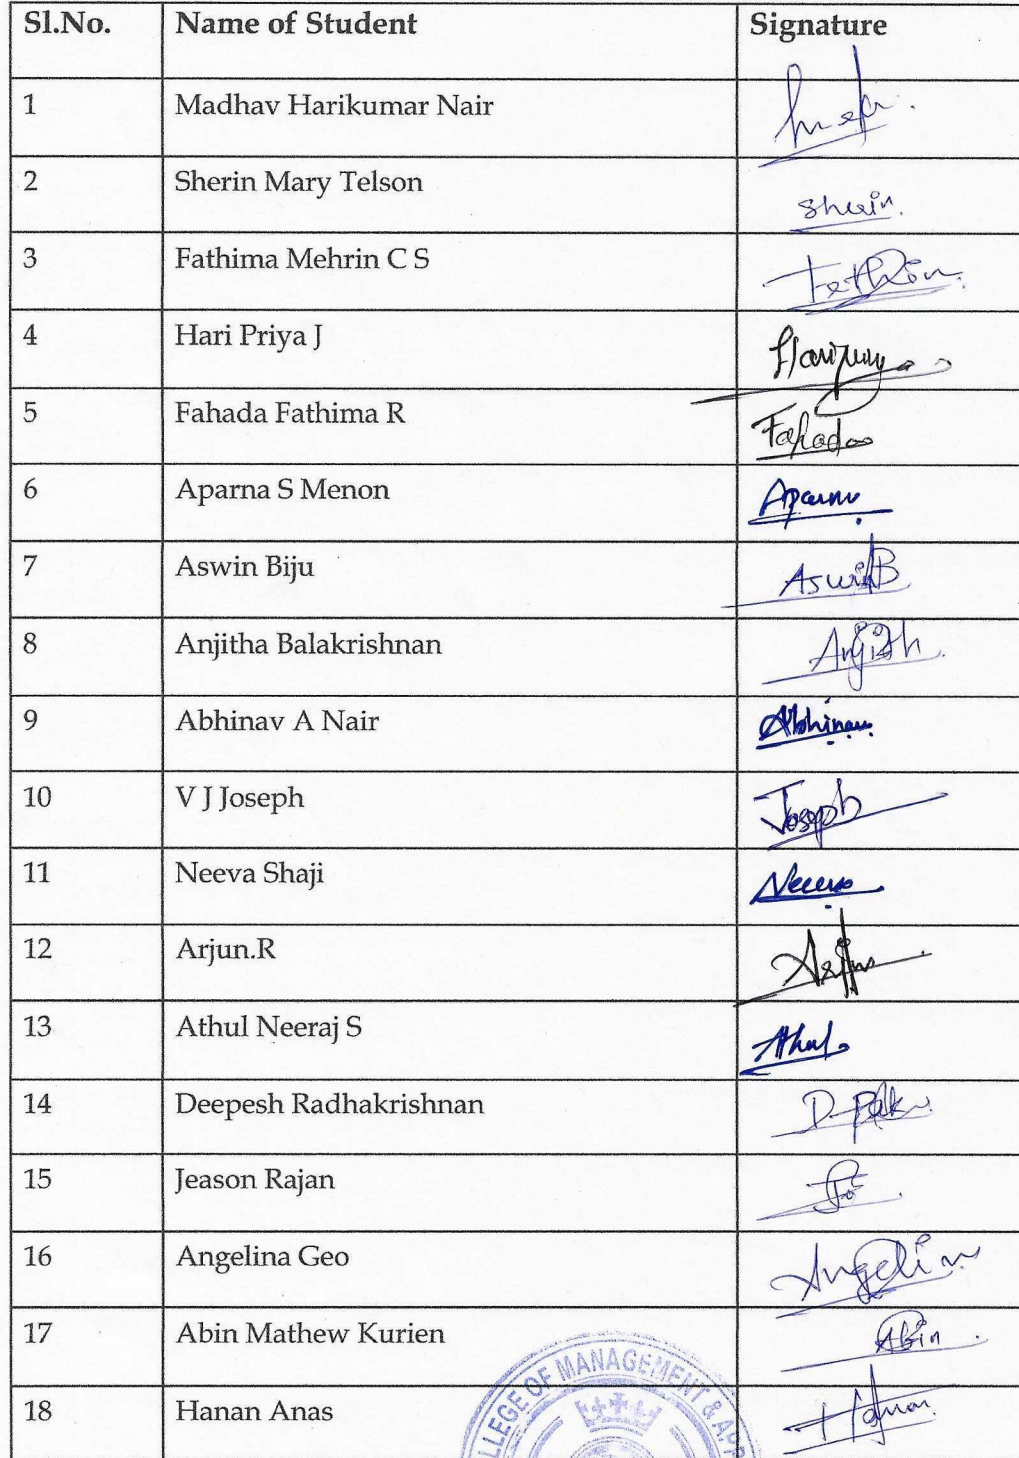 Sl.No. Name of Student Signature
1 Madhav Harikumar Nair
2 Sherin Mary Telson Sherin.
3 Fathima Mehrin C S
4 Hari Priya J
5 Fahada Fathima R Fahada
6 Aparna S Menon Aparna
7 Aswin Biju Aswin B
8 Anjitha Balakrishnan Anjith.
9 Abhinav A Nair Abhinav
10 V J Joseph Joseph
11 Neeva Shaji Neeva
12 Arjun.R Arjun
13 Athul Neeraj S Athul
14 Deepesh Radhakrishnan
15 Jeason Rajan
16 Angelina Geo Angelin
17 Abin Mathew Kurien Abin
18 Hanan Anas
LLEGE OF MANAGEMENT & APP